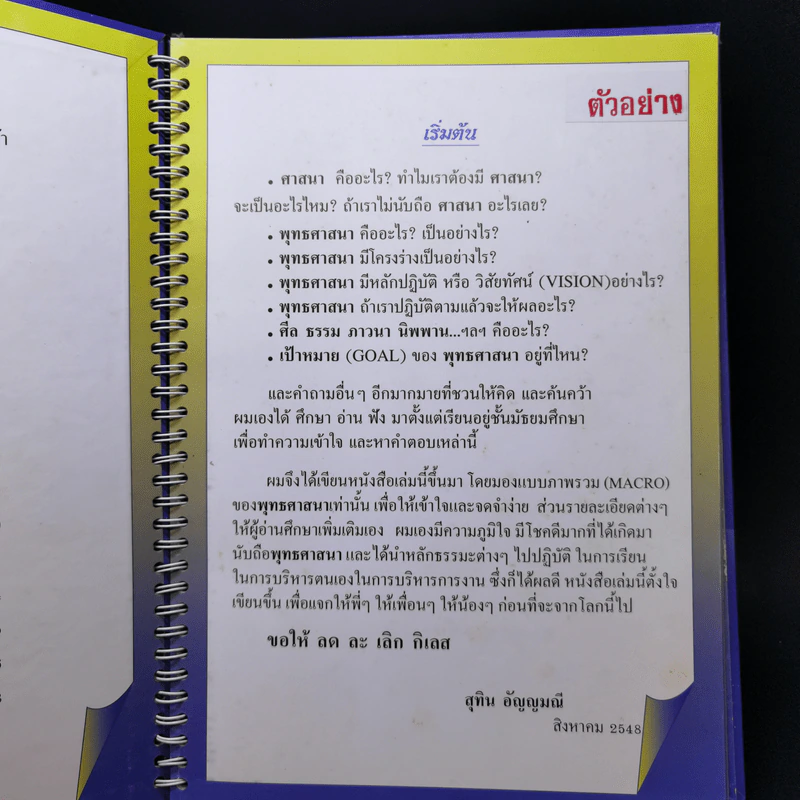 ตัวอย่าง
เริ่มต้น
• ศาสนา คืออะไร? ทำไมเราต้องมี ศาสนา?
จะเป็นอะไรไหม? ถ้าเราไม่นับถือ ศาสนา อะไรเลย?
• พุทธศาสนา คืออะไร? เป็นอย่างไร?
• พุทธศาสนา มีโครงร่างเป็นอย่างไร?
• พุทธศาสนา มีหลักปฏิบัติ หรือ วิสัยทัศน์ (VISION)อย่างไร?
• พุทธศาสนา ถ้าเราปฏิบัติตามแล้วจะให้ผลอะไร?
• ศีล ธรรม ภาวนา นิพพาน...ฯลฯ คืออะไร?
• เป้าหมาย (GOAL) ของ พุทธศาสนา อยู่ที่ไหน?
และคำถามอื่นๆ อีกมากมายที่ชวนให้คิด และค้นคว้า
ผมเองได้ ศึกษา อ่าน ฟัง มาตั้งแต่เรียนอยู่ชั้นมัธยมศึกษา
เพื่อทำความเข้าใจ และหาคำตอบเหล่านี้
ผมจึงได้เขียนหนังสือเล่มนี้ขึ้นมา โดยมองแบบภาพรวม (MACRO)
ของพุทธศาสนาเท่านั้น เพื่อให้เข้าใจและจดจำง่าย ส่วนรายละเอียดต่างๆ
ให้ผู้อ่านศึกษาเพิ่มเติมเอง ผมเองมีความภูมิใจ มีโชคดีมากที่ได้เกิดมา
นับถือพุทธศาสนา และได้นำหลักธรรมะต่างๆ ไปปฏิบัติ ในการเรียน
ในการบริหารตนเองในการบริหารการงาน ซึ่งก็ได้ผลดี หนังสือเล่มนี้ตั้งใจ
เขียนขึ้น เพื่อแจกให้พี่ๆ ให้เพื่อนๆ ให้น้องๆ ก่อนที่จะจากโลกนี้ไป
ขอให้ ลด ละ เลิก กิเลส
สุทิน อัญญมณี
สิงหาคม 2548